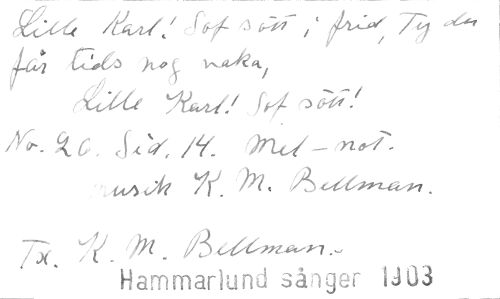 Lille Karl! Sof sött i frid, Ty du
får tids nog vaka,
Lille Karl! Sof sött!
No. 20. Sid. 14. Mel-not.
musik K. M. Bellman.
Tx. K. M. Bellman.-
Hammarlund sånger 1903